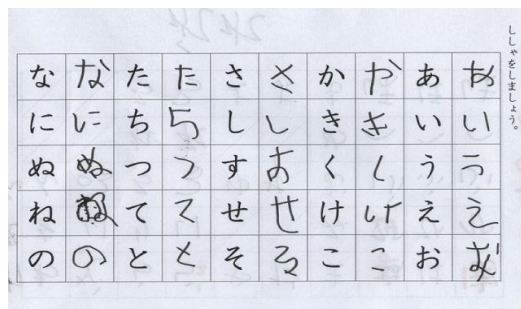 ししゃをしましょう。
あいうえ
あいうえお
かきくけこ
かきくけこ
さしせ
さしすせそ
たちつてと
たちつてと
なにぬの
なにぬねの